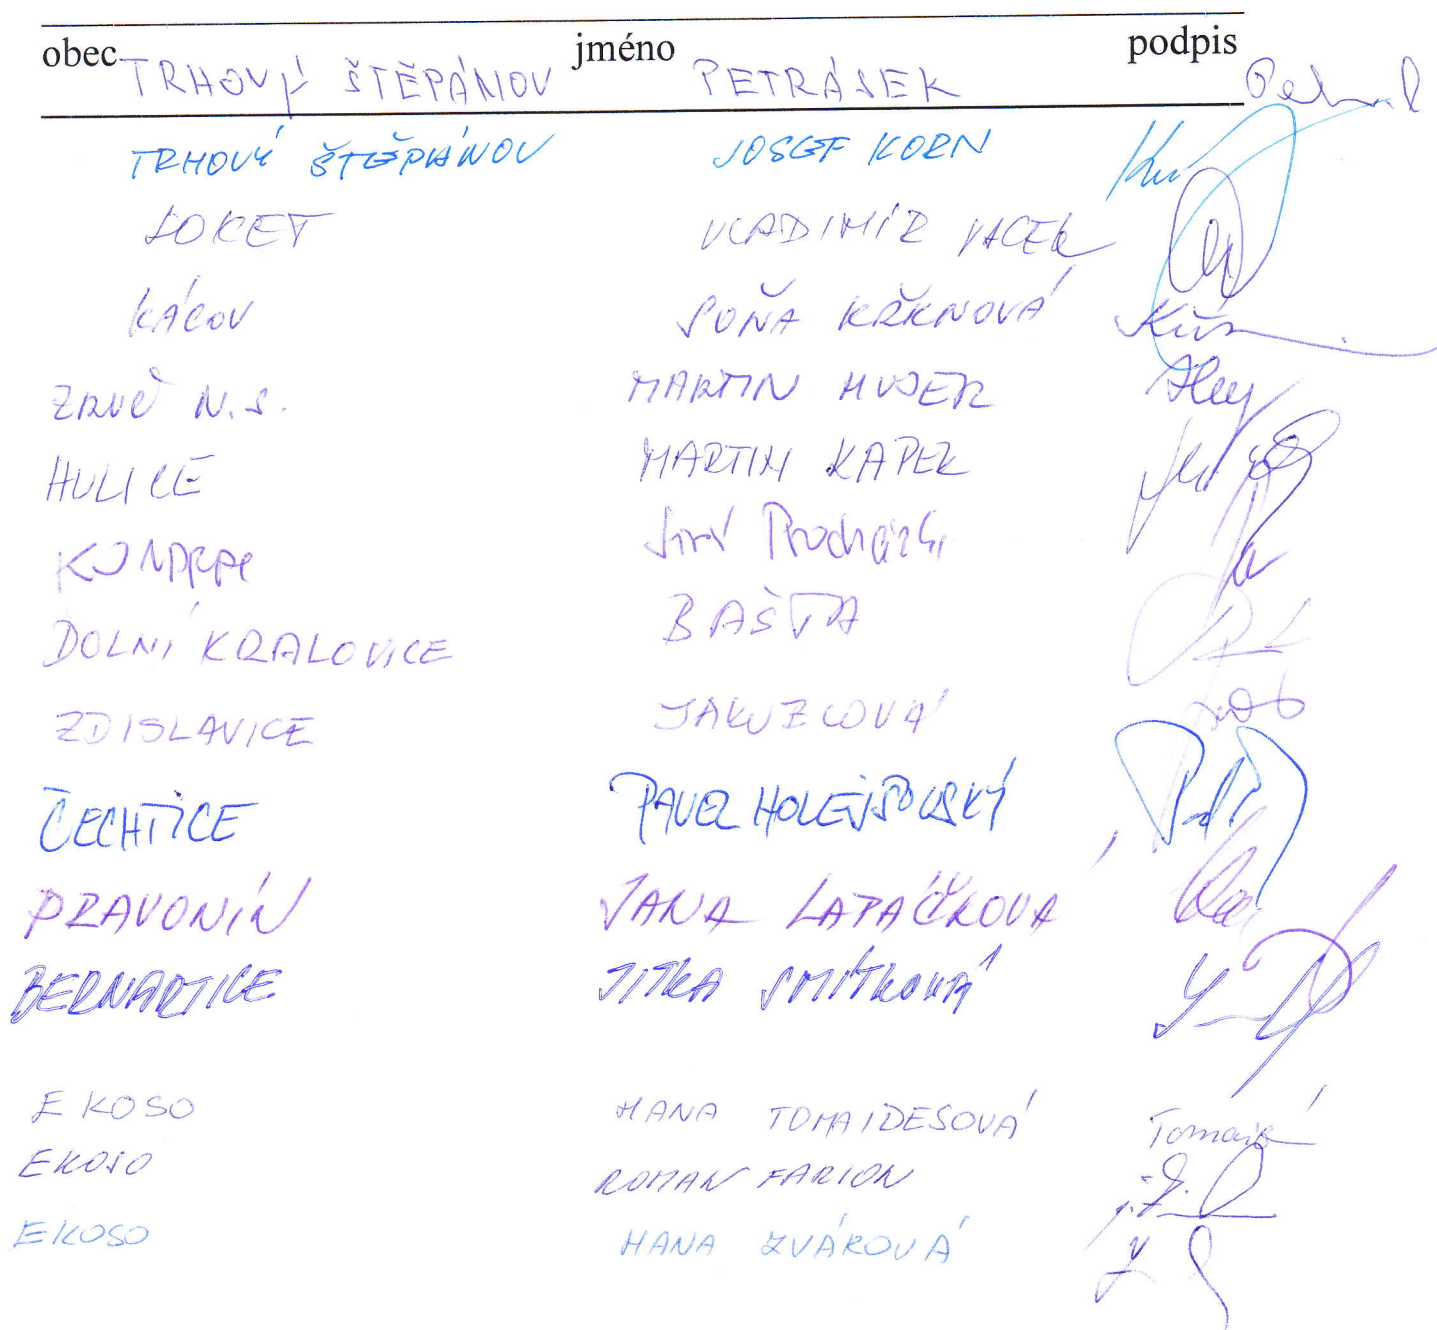 obec jméno podpis
TRHOVÝ ŠTĚPÁNOV PETRÁSEK
TRHOVÝ ŠTĚPÁNOV JOSEF KORN
SOKET VLADIMÍR VACEK
KÁCOV SOŇA KŘKNOVÁ
ZRUČ N.S. MARTIN HUJER
HULICE MARTIN KAPEK
Jiří Procházka
DOLNÍ KRALOVICE BAŠTA
ZDISLAVICE
ČECHTICE PAVEL HOLEJŠOVSKÝ
PRAVONÍN JANA LAPÁČKOVÁ
BERNARTICE JITKA SMÍTKOVÁ
EKOSO HANA TOMAIDESOVÁ
EKOSO ROMAN FARION
EKOSO HANA ZVÁROVÁ